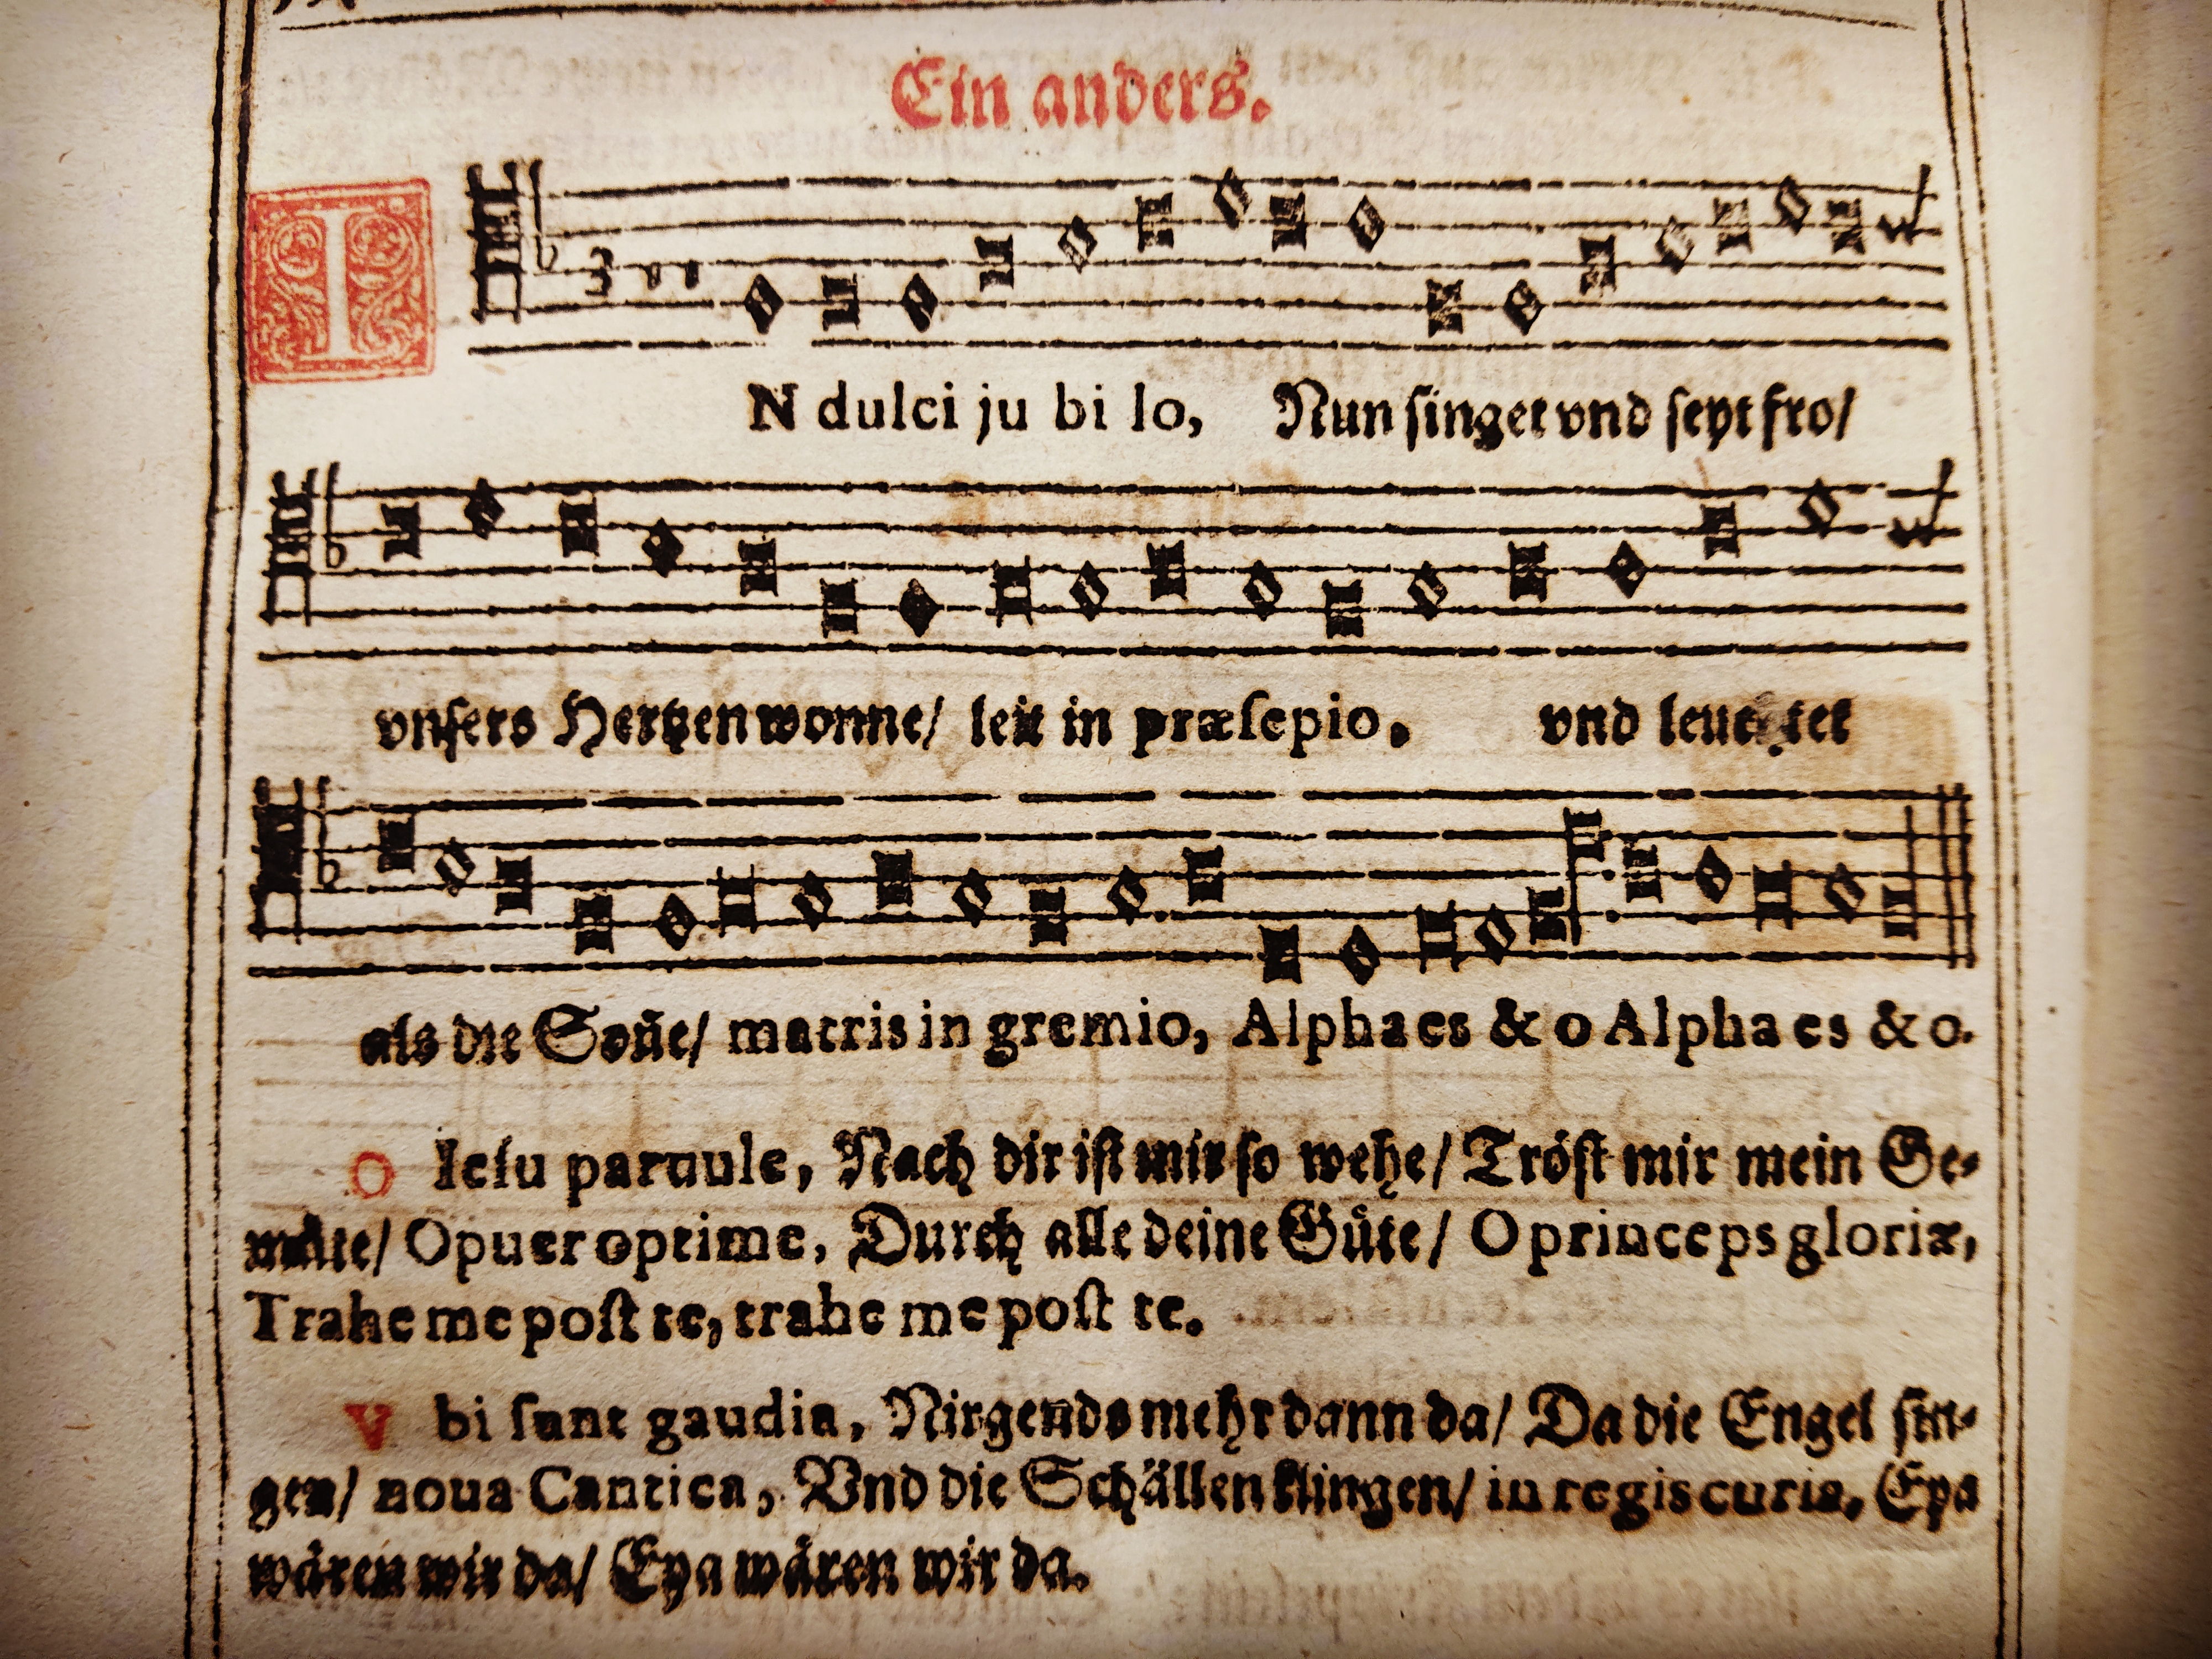 Ein anders.
IN dulci ju bi lo, Nun singet vnd seyt fro/
vnsers Hertzen wonne/ leit in præsepio. vnd leuchtet
als die Soñe/ matris in gremio, Alpha es & o Alpha es & o.
O Iesu paruule, Nach dir ist mir so wehe/ Tröst mir mein Ge-
müte/ O puer optime, Durch alle deine Güte/ O princeps gloriæ,
Trahe me post te, trahe me post te.
Vbi sunt gaudia, Nirgends mehr dann da/ Da die Engel sin-
gen/ noua Cantica, Vnd die Schällen klingen/ in regis curia. Eya
wären wir da/ Eya wären wir da.